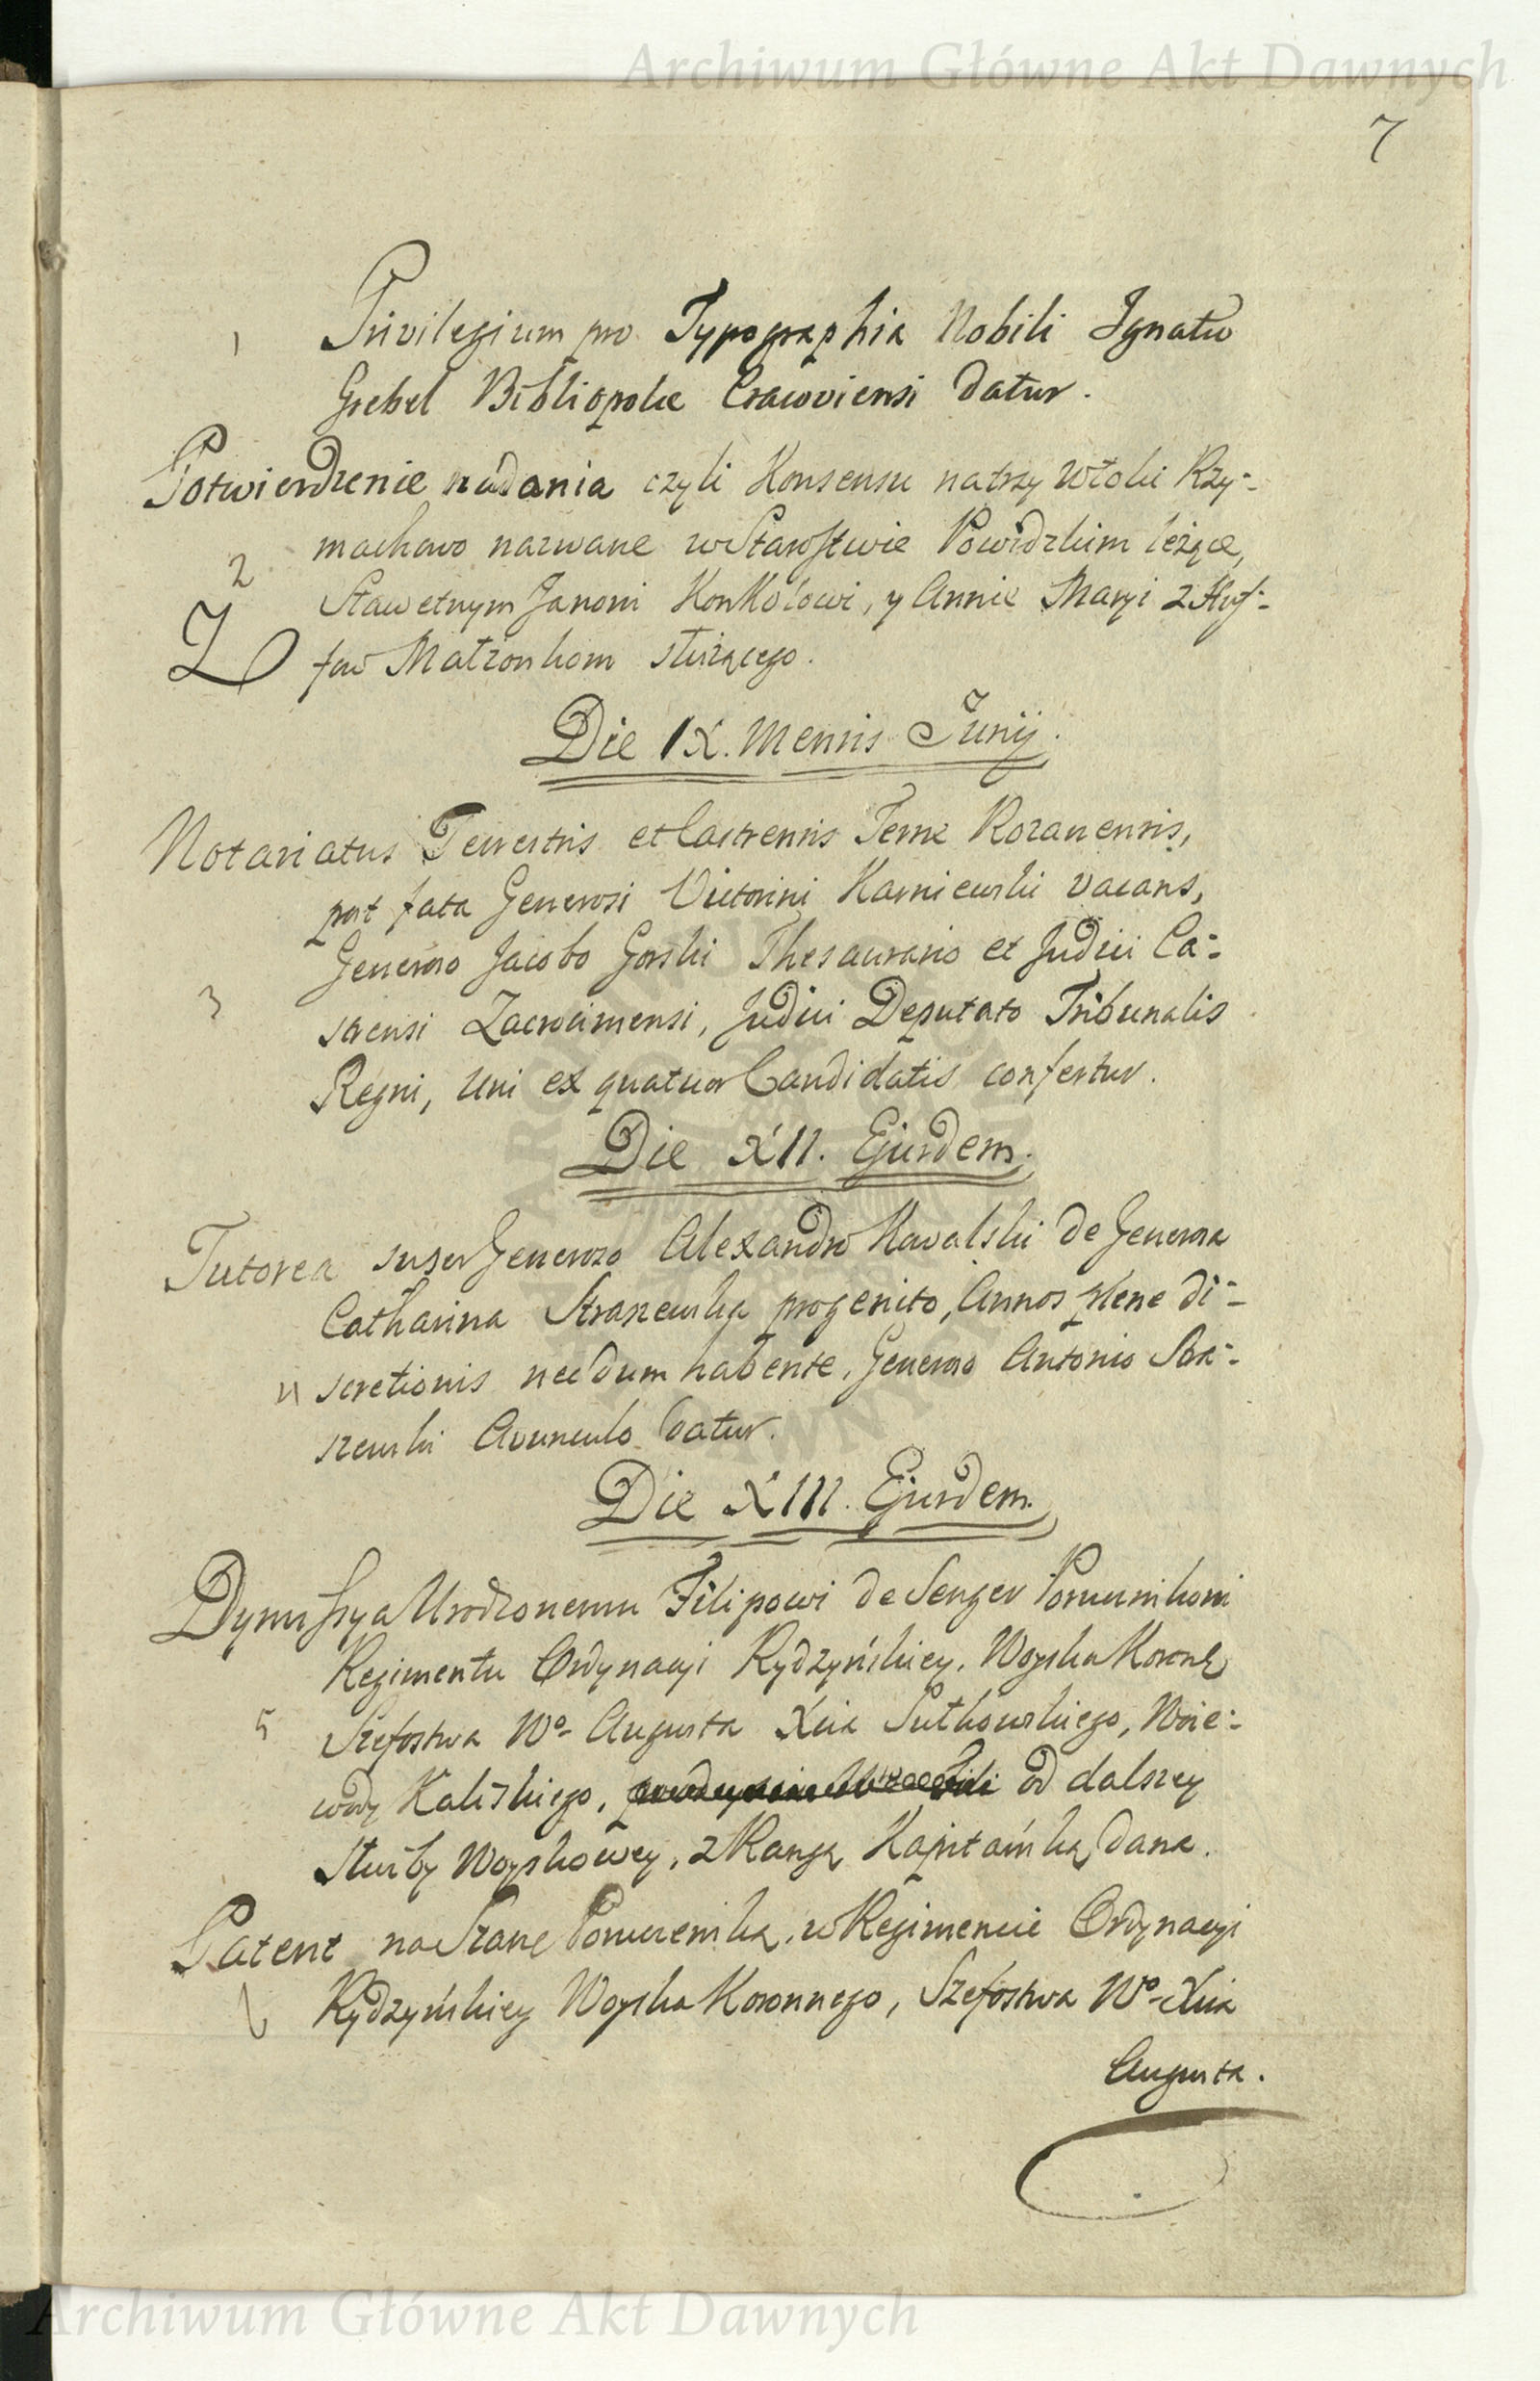 Archiwum Główne Akt Dawnych
7
1 Privilegium pro Typographia Nobili Ignatio
Grebel Bibliopolæ Cracoviensi datur.
Potwierdzenie nadania czyli Konsensu na trzy Włoki Krzy-
machowo nazwane w Starostwie Powidzkim leżące,
2 Sławetnym Janowi Konkolowi, y Annie Maryi z
Małżonkom służącego.
Die IX. Mensis Junij.
Notariatus Terrestris et Castrensis Terræ Rozanensis,
post fata Generosi Victorini Karniewski vacans,
Generoso Jacobo Gorski Thesaurario et Judici Ca-
3 strensi Zacrocimensi, Judici Deputato Tribunalis
Regni, uni ex quatuor Candidatis confertur.
Die XII. Ejusdem.
Tutorea super Generoso Alexandro Kavalski de Generosa
Catharina Straszewska progenito, Annos plene di-
4 scretionis necdum habente, Generoso Antonio Stra-
szewski Avunculo Datur.
Die XIII. Ejusdem.
Dymissya Urodzonemu Filipowi de Senger Porucznikowi
Regimentu Ordynacyi Rydzyńskiey, Woyska Koron:
5 Szefostwa Wo- Augusta Xcia Sułkowskiego, Woie-
wody Kaliskiego, od dalszey
służby Woyskowey, z Rangą Kapitańską dana.
Patent na Szarżę Porucznika, w Regimencie Ordynacyi
6 Rydzyńskiey Woyska Koronnego, Szefostwa Wo- Xcia
Augusta.
Archiwum Główne Akt Dawnych